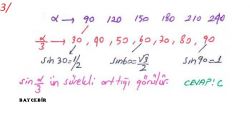 3/
α → 90 120 150 180 210 240
α/3 → 30, 40, 50, 60, 70, 80, 90
sin30=1/2 sin60=√3/2 sin90=1
sin α/3 ün sürekli arttığı görülür. CEVAP: C
BAYÇEBİR